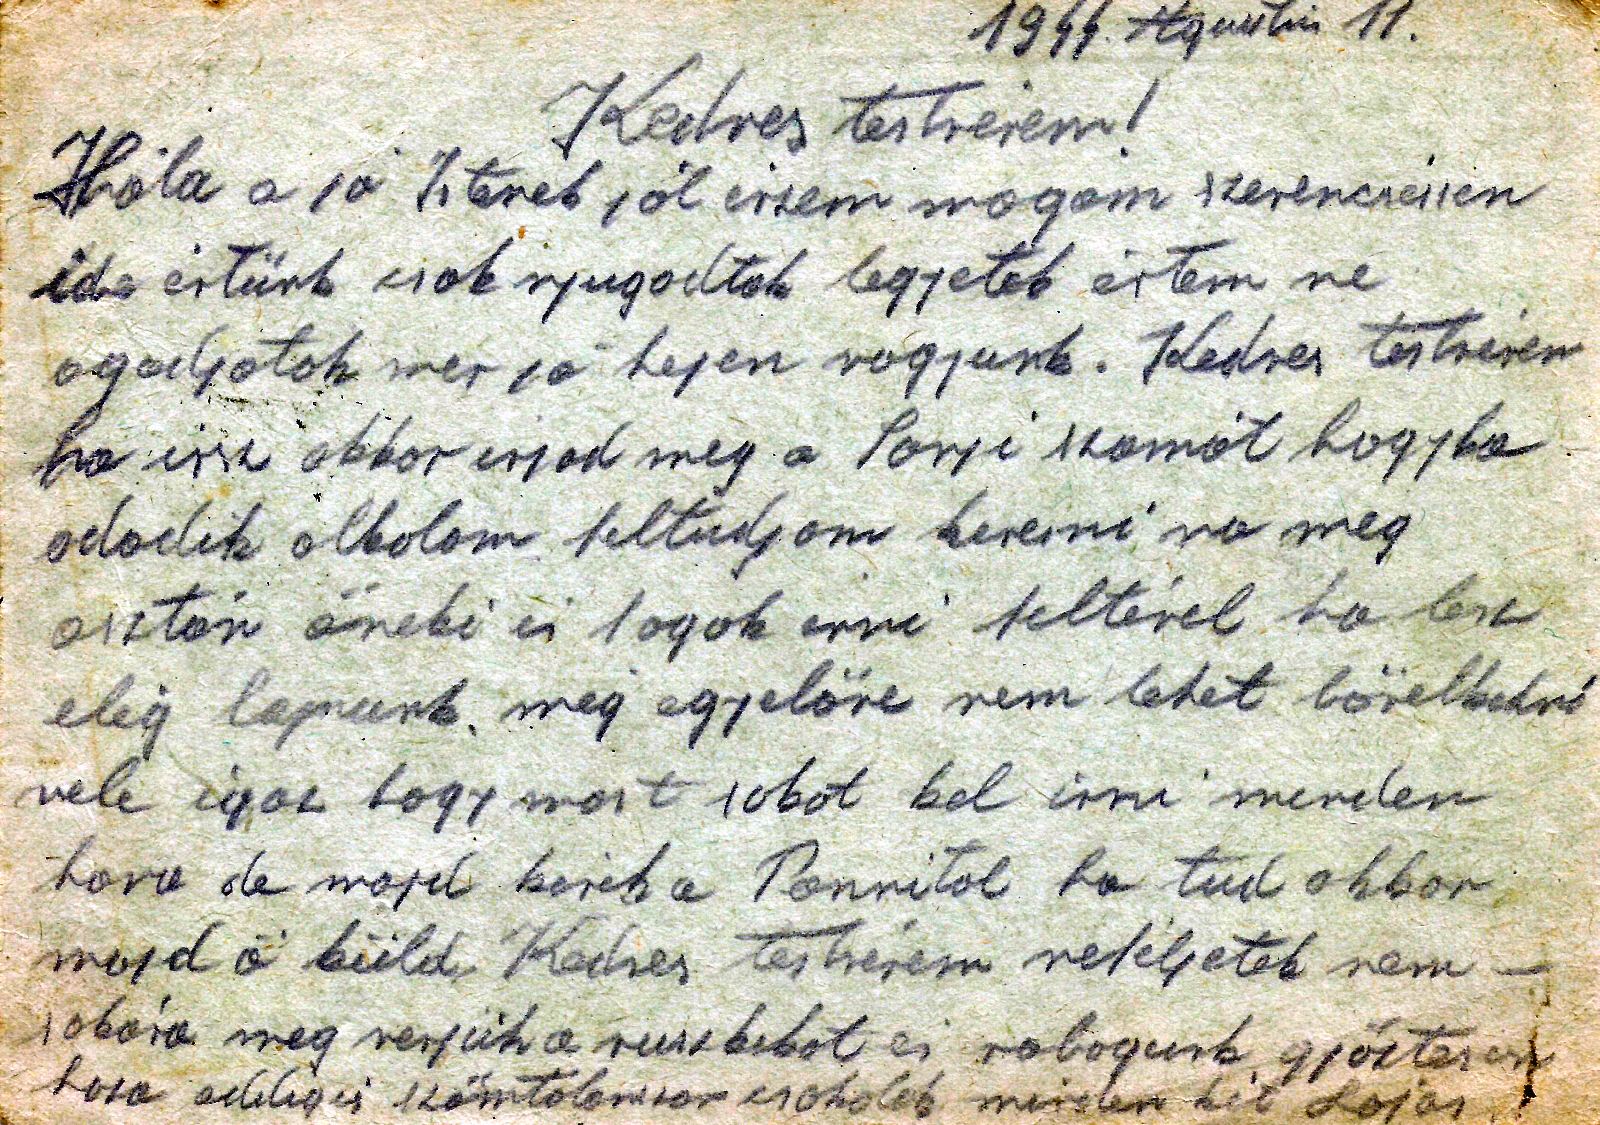 1944. Agusztus 11.
Kedves testvérem!
Hála a jó Istenek jól érzem magam szerencséssen
ide értünk csak nyugodtak legyetek értem ne
agodjatok mer jó hejen vagyunk. Kedves testvérem
ha irsz akkor irjad meg a Sanyi számát hogyha
adodik alkalom feltudjam keresni na meg
asztán őneki is fogok irni feltével ha lesz
elég lapunk. meg egyelőre nem lehet bővelkedni
vele igaz hogy most sokat kel irni minden
hova de majd kérek a Pannitol ha tud akkor
majd ő küld. Kedves testvérem neféljetek nem
sokára meg verjük a ruszkikat és robogunk győztessen
haza addigis számtalanszor csokolak minden kit Lajos